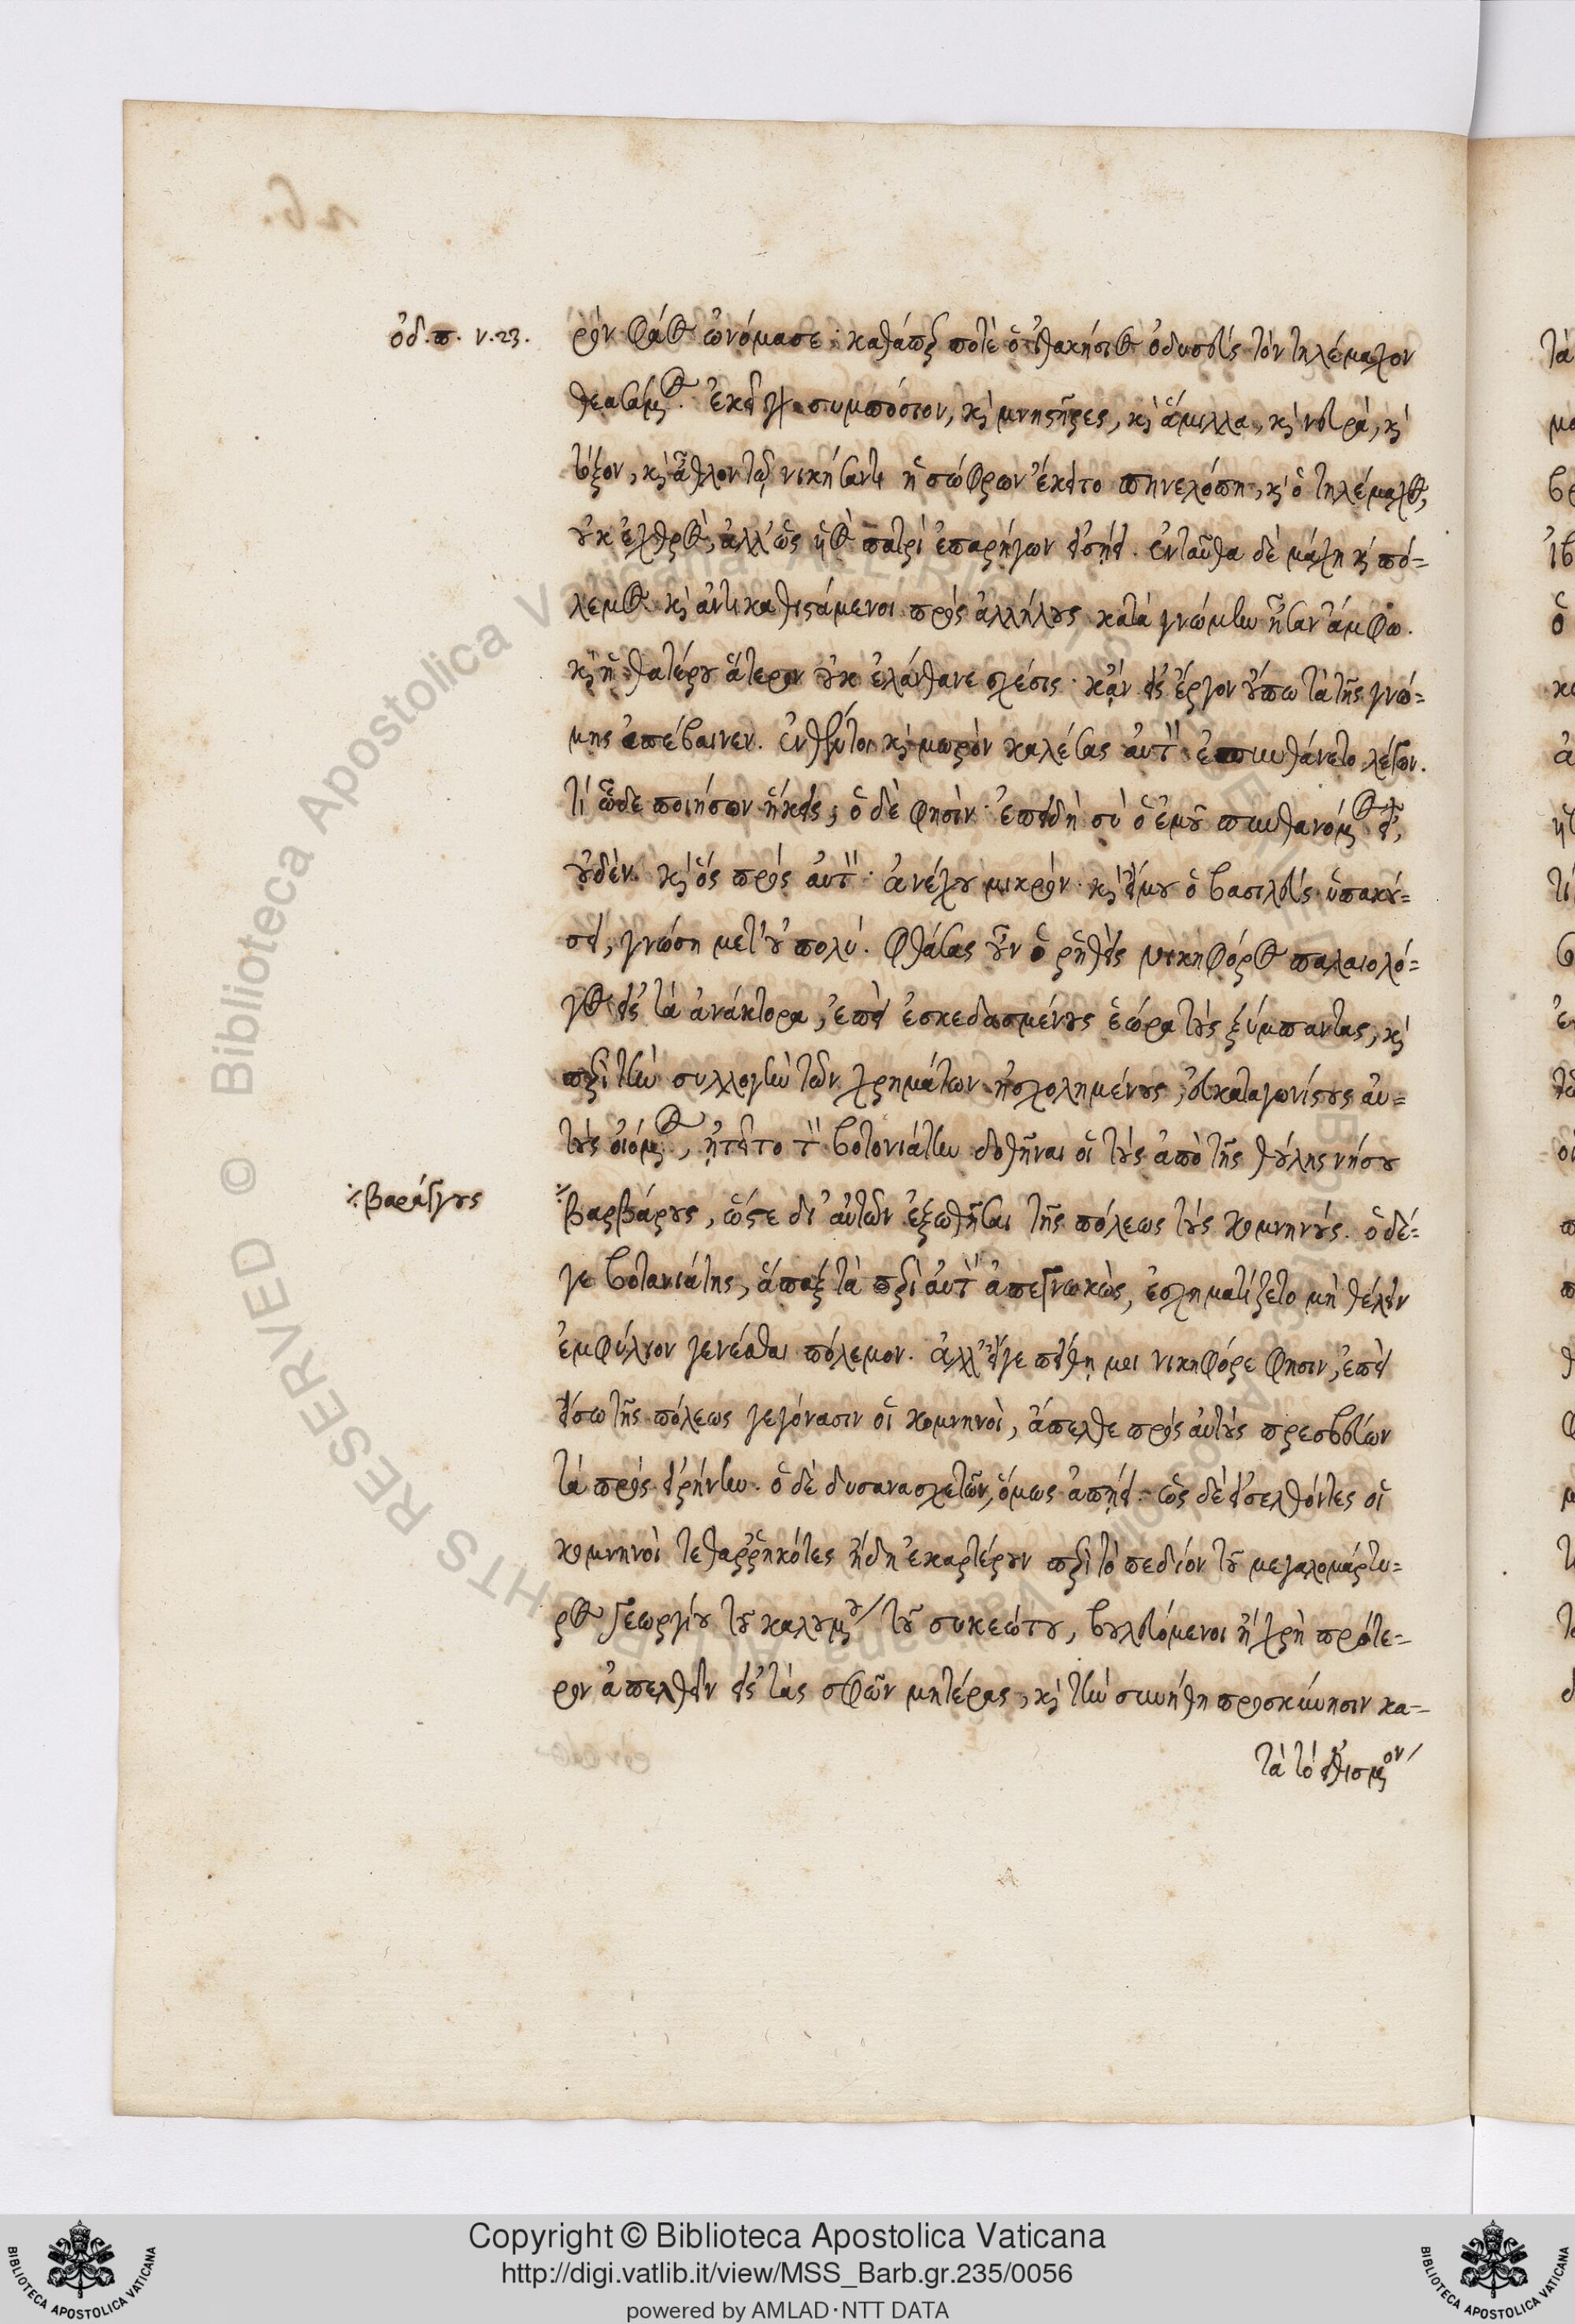 ὀδ. π. v. 23.
ρὸν φάος ὠνόμασε· καθάπερ ποτὲ ὁ ἰθακήσιος ὀδυσσεὺς τὸν τηλέμαχον
θεασάμενος. ἐκεῖ γὰρ συμπόσιον, καὶ μνηστῆρες, καὶ ἅμιλλα, καὶ νευρὰ, καὶ
τόξον, καὶ ἆθλον τῷ νικήσαντι ἡ σώφρων ἔκειτο πηνελόπη, καὶ ὁ τηλέμαχος,
οὐκ ἐχθρὸς, ἀλλ' ὡς υἱὸς πατρὶ ἐπαρήγων εἰσῄει. ἐνταῦθα δὲ μάχη καὶ πό-
λεμος καὶ ἀντικαθιστάμενοι πρὸς ἀλλήλους κατὰ γνώμην ἦσαν ἄμφω.
καὶ ἡ θατέρου ἅτερον οὐκ ἐλάνθανε σχέσις· κἂν εἰς ἔργον οὔπω τὰ τῆς γνώ-
μης ἀπέβαινεν. ἐνθέν τοι καὶ μωρὸν καλέσας αὐτὸν ἐπυνθάνετο λέγων.
τί ὧδε ποιήσων ἥκεις; ὁ δὲ φησίν· ἐπειδὴ σὺ ὁ ἐμοῦ πυνθανόμενος εἶ,
οὐδέν. καὶ ὃς πρὸς αὐτὸν· ἀνέχου μικρόν· καὶ εἴ μου ὁ βασιλεὺς ὑπακού-
σει, γνώσῃ μετ' οὐ πολύ. φθάσας οὖν ὁ ῥηθεὶς νικηφόρος παλαιολό-
γος εἰς τὰ ἀνάκτορα, ἐπεὶ ἐσκεδασμένους ἑώρα τοὺς ξύμπαντας, καὶ
περὶ τὴν συλλογὴν τῶν χρημάτων ἠσχολημένους, εὐκαταγωνίστους αὐ-
τοὺς οἰόμενος, ᾐτεῖτο τὸν βοτονιάτην δοθῆναι οἱ τοὺς ἀπὸ τῆς θούλης νήσου
⁒ βαράγγους
⁒ βαρβάρους, ὥστε δι' αὐτῶν ἐξωθῆσαι τῆς πόλεως τοὺς κομνηνούς. ὁ δέ-
γε βοτανιάτης, ἅπαξ τὰ περὶ αὐτὸν ἀπεγνωκὼς, ἐσχηματίζετο μὴ θέλειν
ἐμφύλιον γενέσθαι πόλεμον. ἀλλ' εἴγε πείθῃ μοι νικηφόρε φησιν, ἐπεὶ
εἴσω τῆς πόλεως γεγόνασιν οἱ κομνηνοὶ, ἄπελθε πρὸς αὐτοὺς πρεσβεύων
τὰ πρὸς εἰρήνην. ὁ δὲ δυσανασχετῶν, ὅμως ἀπῄει. ὡς δὲ εἰσελθόντες οἱ
κομνηνοὶ τεθαῤῥηκότες ἤδη ἐκαρτέρουν περὶ τὸ πεδίον τοῦ μεγαλομάρτυ-
ρος γεωργίου τοῦ καλουμένου τοῦ συκεώτου, βουλευόμενοι ἢ χρὴ πρότε-
ρον ἀπελθεῖν εἰς τὰς σφῶν μητέρας, καὶ τὴν συνήθη προσκύνησιν κα-
τὰ τὸ εἰθισμένον
Copyright © Biblioteca Apostolica Vaticana
http://digi.vatlib.it/view/MSS_Barb.gr.235/0056
powered by AMLAD·NTT DATA